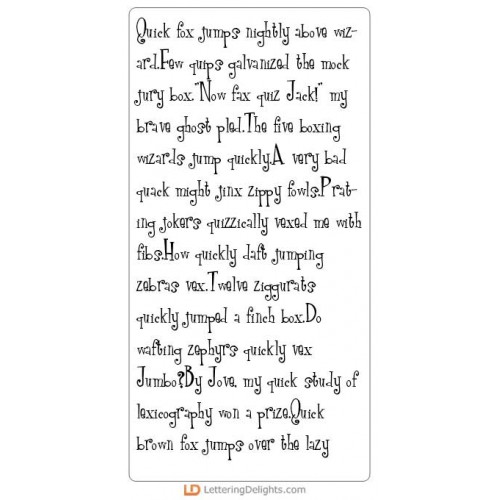 Quick fox jumps nightly above wiz-
ard.Few quips galvanized the mock
jury box."Now fax quiz Jack!" my
brave ghost pled.The five boxing
wizards jump quickly.A very bad
quack might jinx zippy fowls.Prat-
ing jokers quizzically vexed me with
fibs.How quickly daft jumping
zebras vex.Twelve ziggurats
quickly jumped a finch box.Do
wafting zephyrs quickly vex
Jumbo?By Jove, my quick study of
lexicography won a prize.Quick
brown fox jumps over the lazy
LD LetteringDelights.com